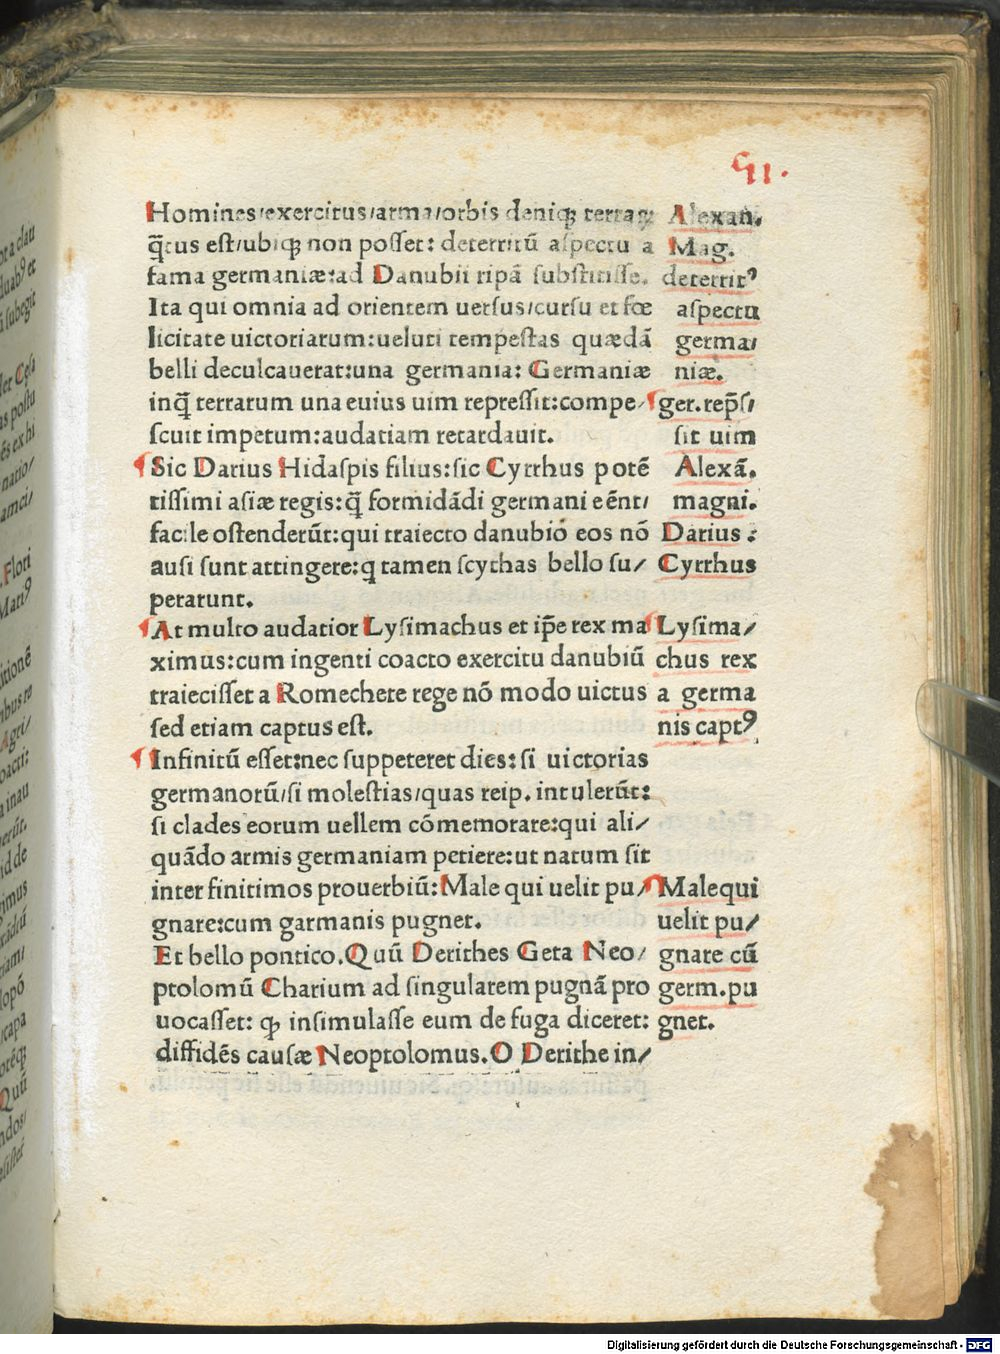 Homines/exercitus/arma/orbis deniqꝫ terraꝝ
q̃tus est/ubiqꝫ non posset: deterritũ aspectu a
fama germaniæ:ad Danubii ripã substitisse.
Ita qui omnia ad orientem uersus/cursu et fœ
licitate uictoriarum:ueluti tempestas quædã
belli deculcauerat:una germania: Germaniæ
inq̃ terrarum una euius uim repressit:compe/
scuit impetum:audatiam retardauit.
Sic Darius Hidaspis filius:sic Cyrrhus potẽ
tissimi asiæ regis:q̃ formidãdi germani eẽnt/
facile ostenderũt:qui traiecto danubio eos nõ
ausi sunt attingere:q tamen scythas bello su/
perarunt.
At multo audatior Lysimachus et ip̃e rex ma
ximus:cum ingenti coacto exercitu danubiũ
traiecisset a Romechete rege nõ modo uictus
sed etiam captus est.
Infinitũ esset:nec suppeteret dies:si uictorias
germanorũ/si molestias/quas reip. intulerũt:
si clades eorum uellem cõmemorare:qui ali/
quãdo armis germaniam petiere:ut natum sit
inter finitimos prouerbiũ:Male qui uelit pu/
gnare:cum garmanis pugnet.
Et bello pontico.Quũ Derithes Geta Neo/
ptolomũ Charium ad singularem pugnã pro
uocasset: qꝫ insimulasse eum de fuga diceret:
diffidẽs causæ Neoptolomus.O Derithe in/
Alexan.
Mag.
deterritꝰ
aspectu
germa/
niæ.
ger.rep̃s/
sit uim
Alexã.
magni.
Darius:
Cyrrhus
Lysima/
chus rex
a germa
nis captꝰ
Malequi
uelit pu/
gnare cũ
germ.pu
gnet.
Digitalisierung gefördert durch die Deutsche Forschungsgemeinschaft - DFG